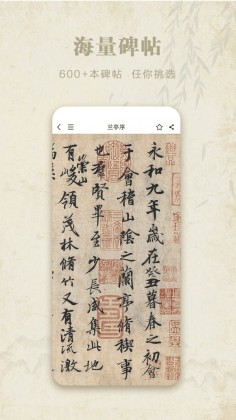 海量碑帖
600+本碑帖 任你挑选
兰亭序
永和九年歲在癸丑暮春之初會
于會稽山陰之蘭亭脩稧事
也羣賢畢至少長咸集此地
有崇山峻領茂林脩竹又有清流激